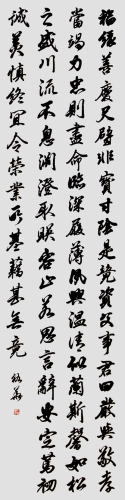 福緣善慶尺璧非寶寸陰是競資父事君曰嚴與敬孝
當竭力忠則盡命臨深履薄夙興溫凊似蘭斯馨如松
之盛川流不息淵澄取映容止若思言辭安定篤初
誠美慎終宜令榮業所基藉甚無竟